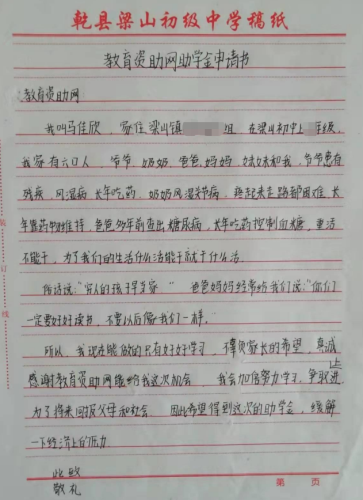 乾县梁山初级中学稿纸
教育资助网助学金申请书
教育资助网
我叫马佳欣,家住梁山镇 组,在梁山初中上 年级,
我家有六口人,爷爷,奶奶,爸爸,妈妈,妹妹和我,爷爷患有
残疾,风湿病,长年吃药,奶奶风湿关节病,疼起来走路都困难,长
年靠药物维持,爸爸多年前查出糖尿病,长年吃药控制血糖,重活
不能干,为了我们的生活什么活能干就干什么活。
俗话说:"穷人的孩子早当家" 爸爸妈妈经常给我们说:"你们
一定要好好读书,不要以后像我们一样。"
所以,我现在能做的只有好好学习,不辜负家长的希望,真诚
感谢教育资助网能给我这次机会,我会加倍努力学习,争取进
为了将来回报父母和社会 因此希望得到这次的助学金,缓解
一下经济上的压力
此致
敬礼
装订线
第 页